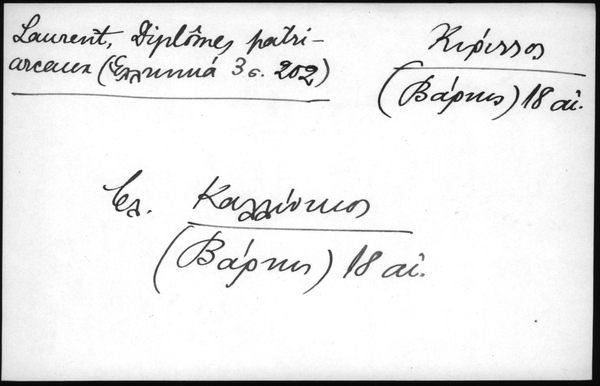 Laurent, Diplômes patri-
arcaux (Ἑλληνικά 3 σ. 202)
(Βάρνης) 18 αἰ.
Καλλίνικος
(Βάρνης) 18 αἰ.